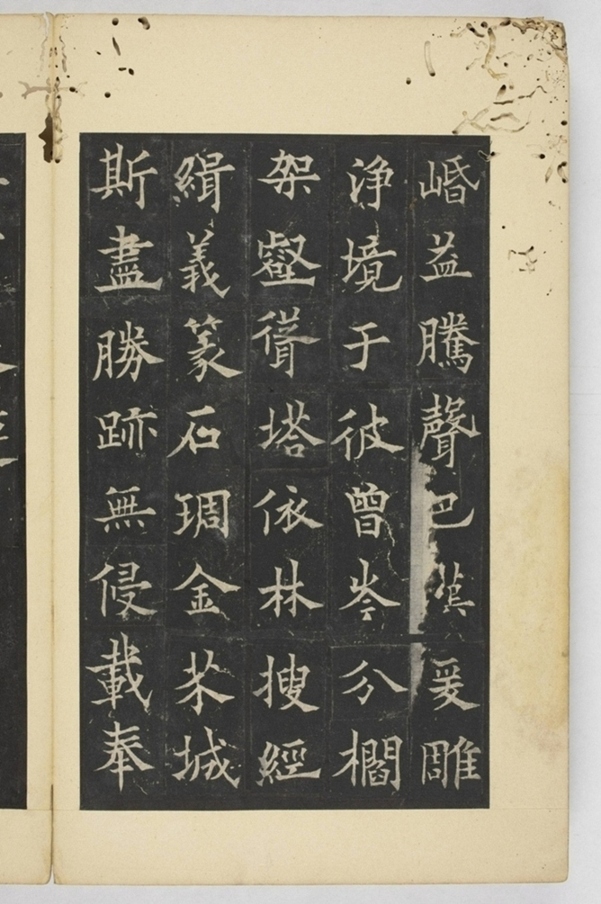 崏益騰聲巴𮎰爰雕
淨境于彼曾岑分櫩
架壑聳塔依林搜經
緝義篆石琱金芥城
斯盡勝跡無侵載奉